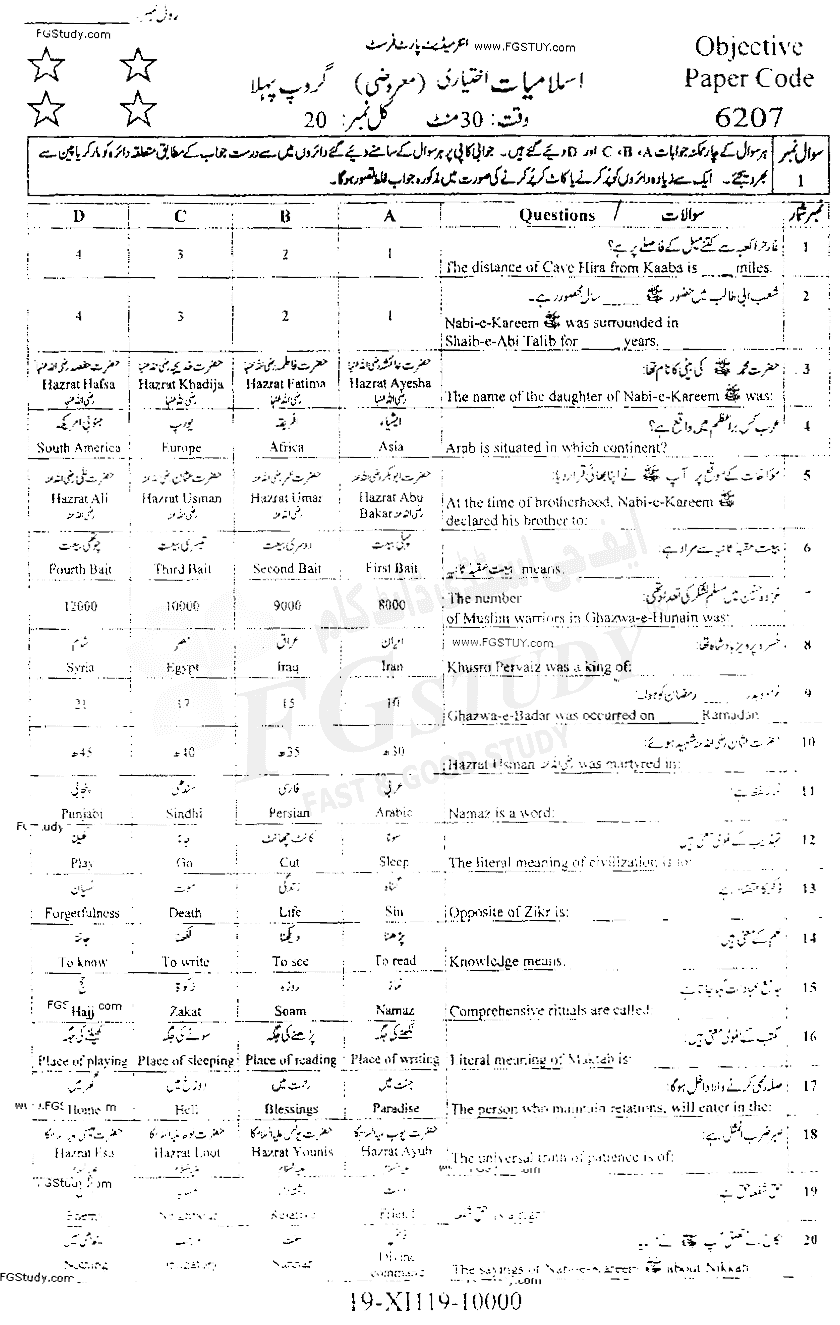 رول نمبر
FGStudy.com
انٹرمیڈیٹ پارٹ فرسٹ www.FGSTUY.com
Objective
Paper Code
6207
اسلامیات اختیاری (معروضی) گروپ پہلا
وقت: 30 منٹ کل نمبر: 20
سوال نمبر 1
ہر سوال کے چار ممکنہ جوابات A، B، C اور D دیئے گئے ہیں۔ جوابی کاپی پر ہر سوال کے سامنے دیئے گئے دائروں میں سے درست جواب کے مطابق متعلقہ دائرہ کو مارکر یا پین سے
بھر دیجئے۔ ایک سے زیادہ دائروں کو پُر کرنے یا کاٹ کر پُر کرنے کی صورت میں مذکورہ جواب غلط تصور ہوگا۔
D C B A Questions / سوالات نمبر شمار
غار حرا کعبہ سے کتنے میل کے فاصلے پر ہے؟ 1
4 3 2 1
The distance of Cave Hira from Kaaba is ____ miles.
شعب ابی طالب میں حضور ﷺ ____ سال محصور رہے۔ 2
4 3 2 1
Nabi-e-Kareem ﷺ was surrounded in
Shaib-e-Abi Talib for ____ years.
حضرت حفصہ رضی اللہ عنہا حضرت خدیجہ رضی اللہ عنہا حضرت فاطمہ رضی اللہ عنہا حضرت عائشہ رضی اللہ عنہا حضرت محمد ﷺ کی بیٹی کا نام تھا: 3
Hazrat Hafsa Hazrat Khadija Hazrat Fatima Hazrat Ayesha The name of the daughter of Nabi-e-Kareem ﷺ was:
رضی اللہ عنہا رضی اللہ عنہا رضی اللہ عنہا رضی اللہ عنہا
جنوبی امریکہ یورپ افریقہ ایشیاء عرب کس براعظم میں واقع ہے؟ 4
South America Europe Africa Asia Arab is situated in which continent?
حضرت علی رضی اللہ عنہ حضرت عثمان رضی اللہ عنہ حضرت عمر رضی اللہ عنہ حضرت ابوبکر رضی اللہ عنہ مؤاخات کے موقع پر آپ ﷺ نے اپنا بھائی قرار دیا: 5
Hazrat Ali Hazrat Usman Hazrat Umar Hazrat Abu At the time of brotherhood, Nabi-e-Kareem ﷺ
رضی اللہ عنہ رضی اللہ عنہ رضی اللہ عنہ Bakar رضی اللہ عنہ declared his brother to:
چوتھی بیعت تیسری بیعت دوسری بیعت پہلی بیعت بیعت عقبہ ثانیہ سے مراد ہے 6
Fourth Bait Third Bait Second Bait First Bait بیعت عقبہ ثانیہ means.
غزوہ حنین میں مسلم لشکر کی تعداد تھی: 7
12000 10000 9000 8000 The number
of Muslim warriors in Ghazwa-e-Hunain was:
شام مصر عراق ایران www.FGSTUY.com خسرو پرویز بادشاہ تھا: 8
Syria Egypt Iraq Iran Khusro Pervaiz was a king of:
غزوہ بدر ____ رمضان کو ہوا۔ 9
21 17 15 10 Ghazwa-e-Badar was occurred on ____ Ramadan
حضرت عثمان رضی اللہ عنہ شہید ہوئے: 10
45ھ 40ھ 35ھ 30ھ Hazrat Usman رضی اللہ عنہ was martyred in:
پنجابی سندھی فارسی عربی نماز لفظ ہے: 11
Punjabi Sindhi Persian Arabic Namaz is a word:
کھیلنا جانا کانٹ چھانٹ سونا تہذیب کے لغوی معنی ہیں 12
Play Go Cut Sleep The literal meaning of civilization is to:
نسیان موت زندگی گناہ ذکر کا متضاد ہے 13
Forgetfulness Death Life Sin Opposite of Zikr is:
جاننا لکھنا دیکھنا پڑھنا علم کے معنی ہیں 14
To know To write To see To read Knowledge means.
حج زکوٰة روزہ نماز جامع عبادات کہا جاتا ہے 15
Hajj Zakat Soam Namaz Comprehensive rituals are called
کھیلنے کی جگہ سونے کی جگہ پڑھنے کی جگہ لکھنے کی جگہ مکتب کے لغوی معنی ہیں: 16
Place of playing Place of sleeping Place of reading Place of writing Literal meaning of Maktab is:
گھر میں دوزخ میں رحمت میں جنت میں صلہ رحمی کرنے والا داخل ہوگا: 17
Home Hell Blessings Paradise The person who maintain relations, will enter in the:
حضرت عیسیٰ علیہ السلام کا حضرت لوط علیہ السلام کا حضرت یونس علیہ السلام کا حضرت ایوب علیہ السلام کا صبر ضرب المثل ہے: 18
Hazrat Esa Hazrat Loot Hazrat Younis Hazrat Ayub The universal truth of patience is of:
FGStudy.com حق شفعہ حق ہے 19
20
Divine
command The sayings of Nabi-e-Kareem ﷺ about Nikkah
FGStudy.com
19-XI119-10000
ایف جی سٹڈی ڈاٹ کام
FGSTUDY
FAST & GOOD STUDY